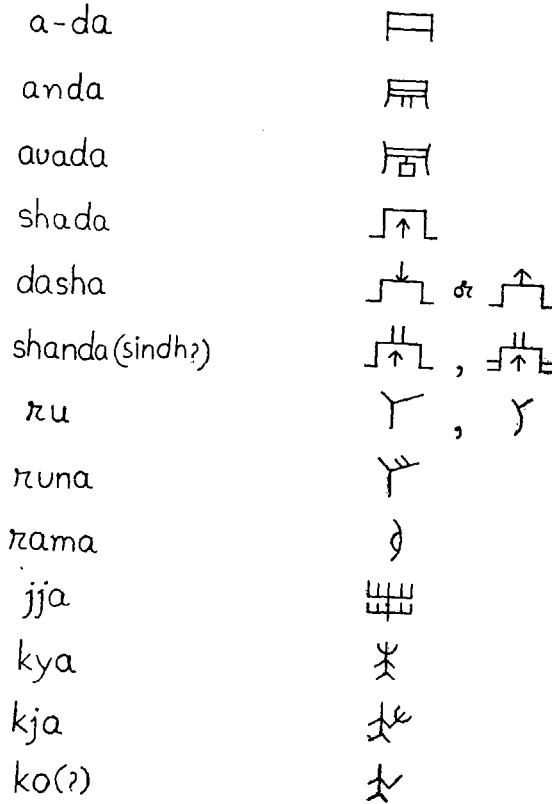 a-da
anda
avada
shada
dasha or
shanda(sindh?) ,
ru ,
runa
rama
jja
kya
kja
ko(?)